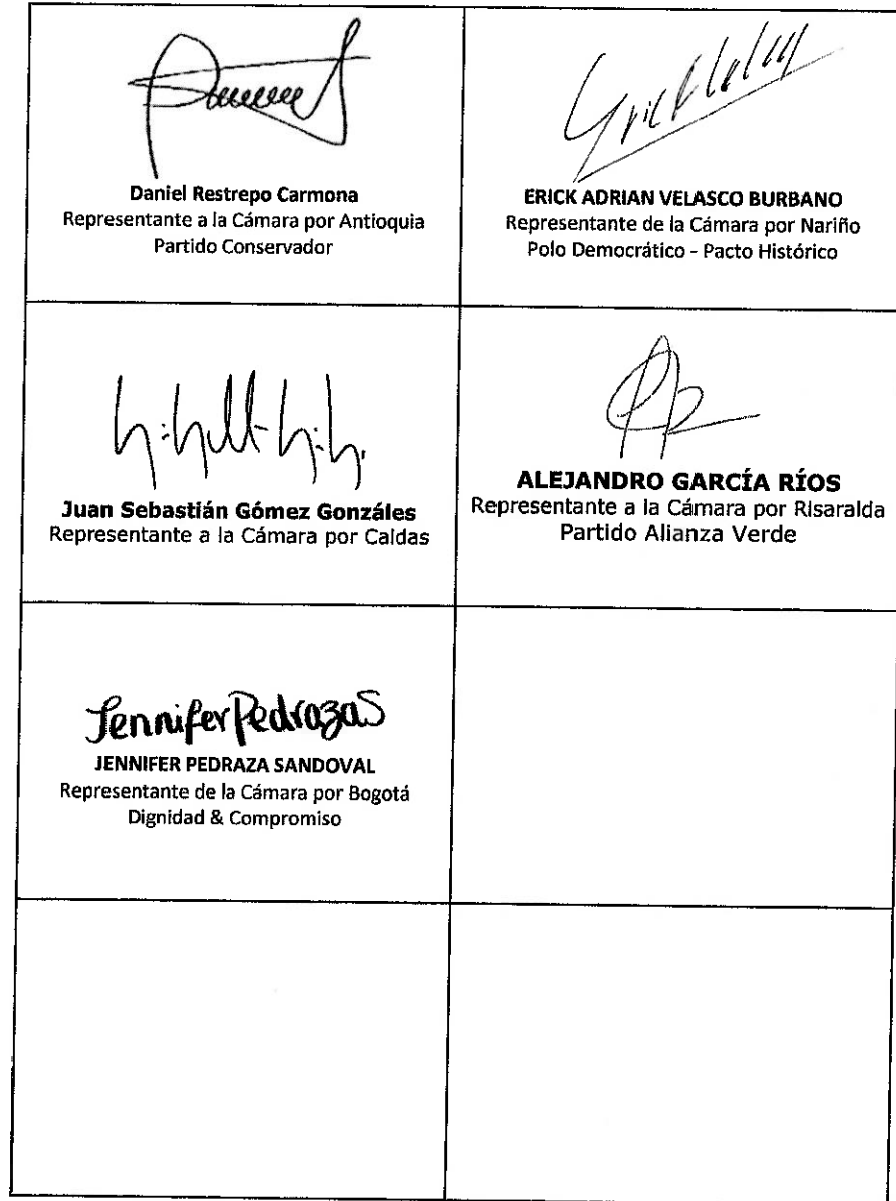 Daniel Restrepo Carmona
Representante a la Cámara por Antioquia
Partido Conservador
ERICK ADRIAN VELASCO BURBANO
Representante de la Cámara por Nariño
Polo Democrático - Pacto Histórico
Juan Sebastián Gómez Gonzáles
Representante a la Cámara por Caldas
ALEJANDRO GARCÍA RÍOS
Representante a la Cámara por Risaralda
Partido Alianza Verde
Jennifer Pedraza S
JENNIFER PEDRAZA SANDOVAL
Representante de la Cámara por Bogotá
Dignidad & Compromiso